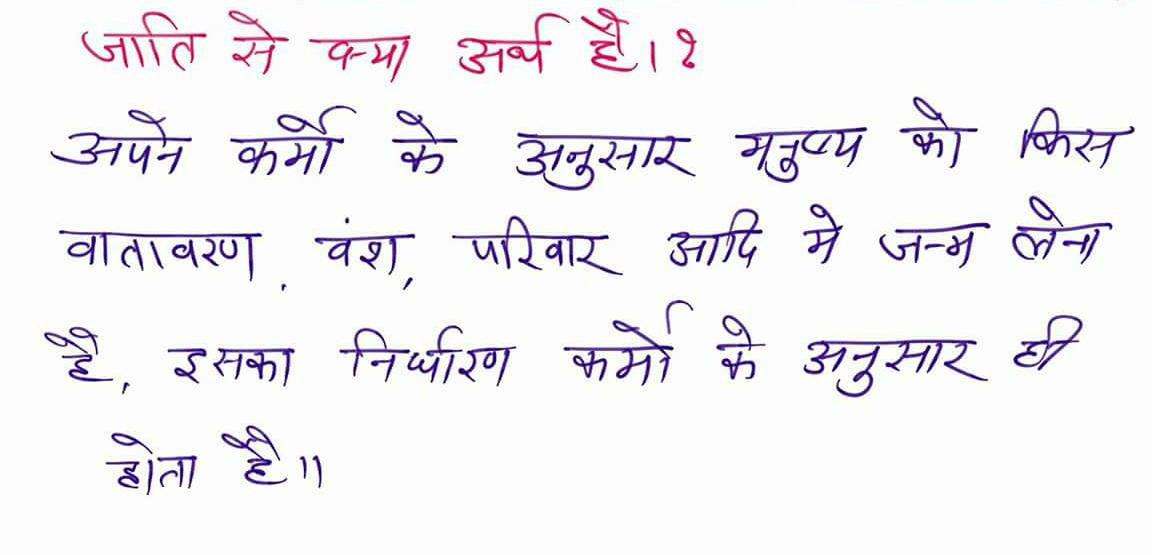 जाति से क्या अर्थ है।?
अपने कर्मो के अनुसार मनुष्य को किस
वातावरण, वंश, परिवार आदि मे जन्म लेना
है, इसका निर्धारण कर्मो के अनुसार ही
होता है॥